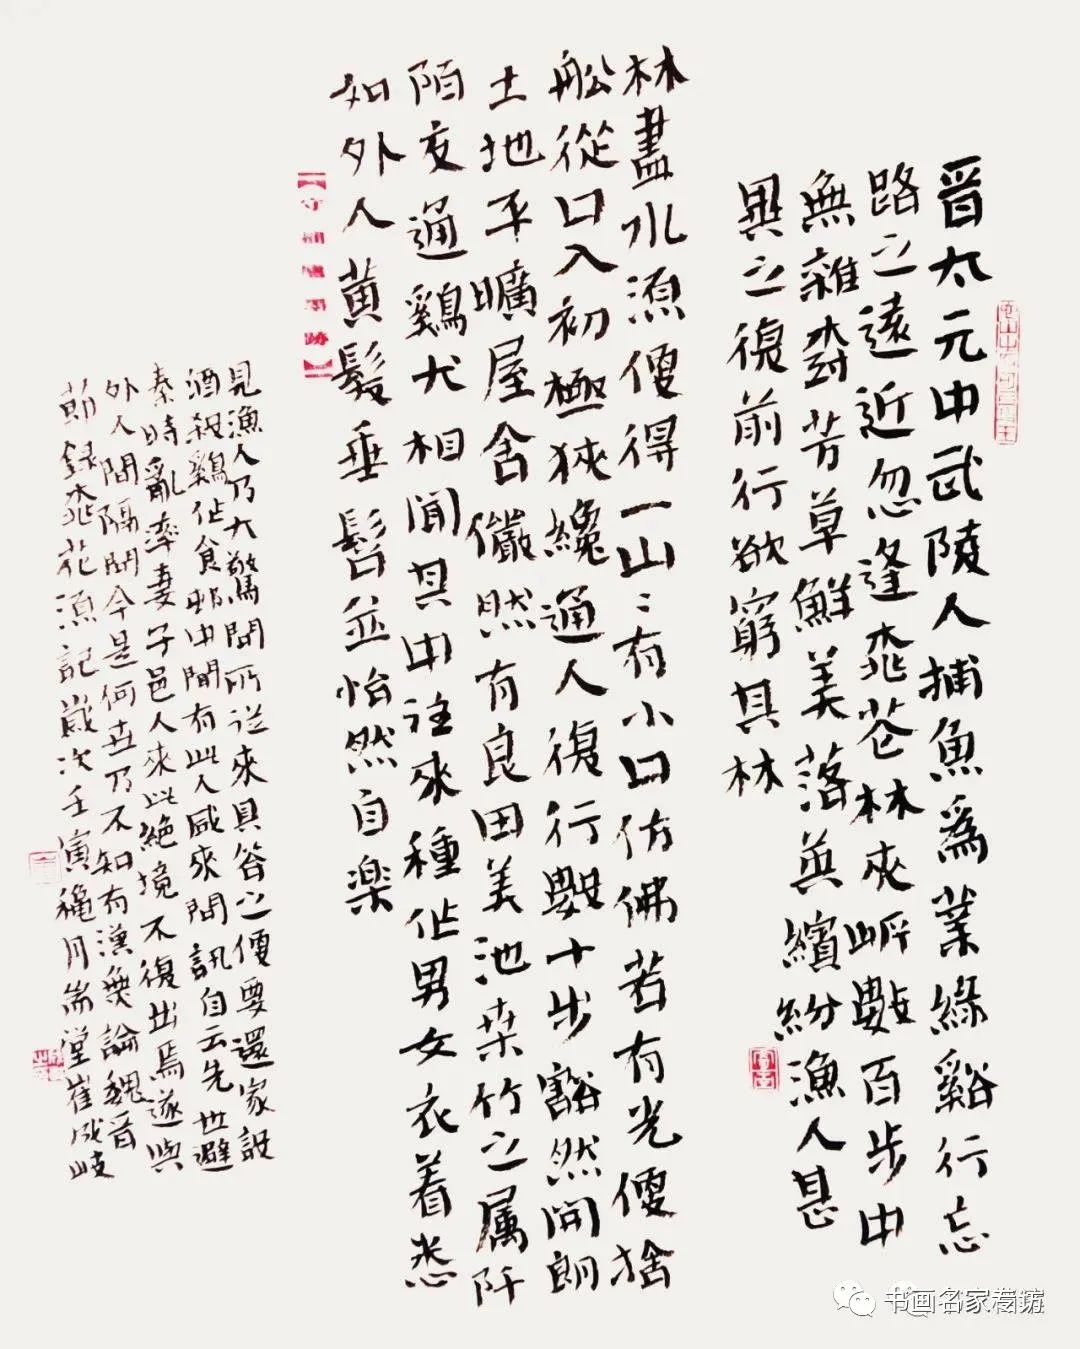 晉太元中武陵人捕魚爲業緣谿行忘
路之遠近忽逢桃花林夾岸數百步中
無雜樹芳草鮮美落英繽紛漁人甚
異之復前行欲窮其林
林盡水源便得一山〻有小口仿佛若有光便捨
船從口入初極狹纔通人復行數十步豁然開朗
土地平曠屋舍儼然有良田美池桑竹之属阡
陌交通鷄犬相聞其中往來種作男女衣着悉
如外人黄髮垂髫並怡然自楽
見漁人乃大驚問所從來具答之便要還家設
酒殺鷄作食邨中聞有此人咸來問訊自云先世避
秦時亂率妻子邑人來此絶境不復出焉遂與
外人間隔問今是何世乃不知有漢無論魏晉
節録桃花源記歲次壬寅穐月耑堂崔成岐
书画名家